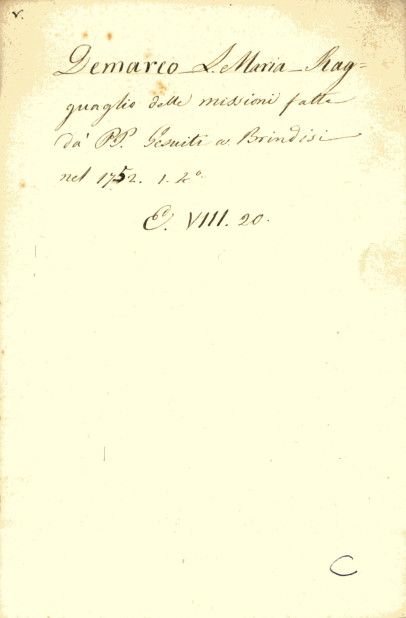 v.
Demarco L. Maria - Rag=
guaglio delle missioni fatte
da' PP. Gesuiti a Brindisi
nel 1752. 1. 4°.
E. VIII. 20.
C